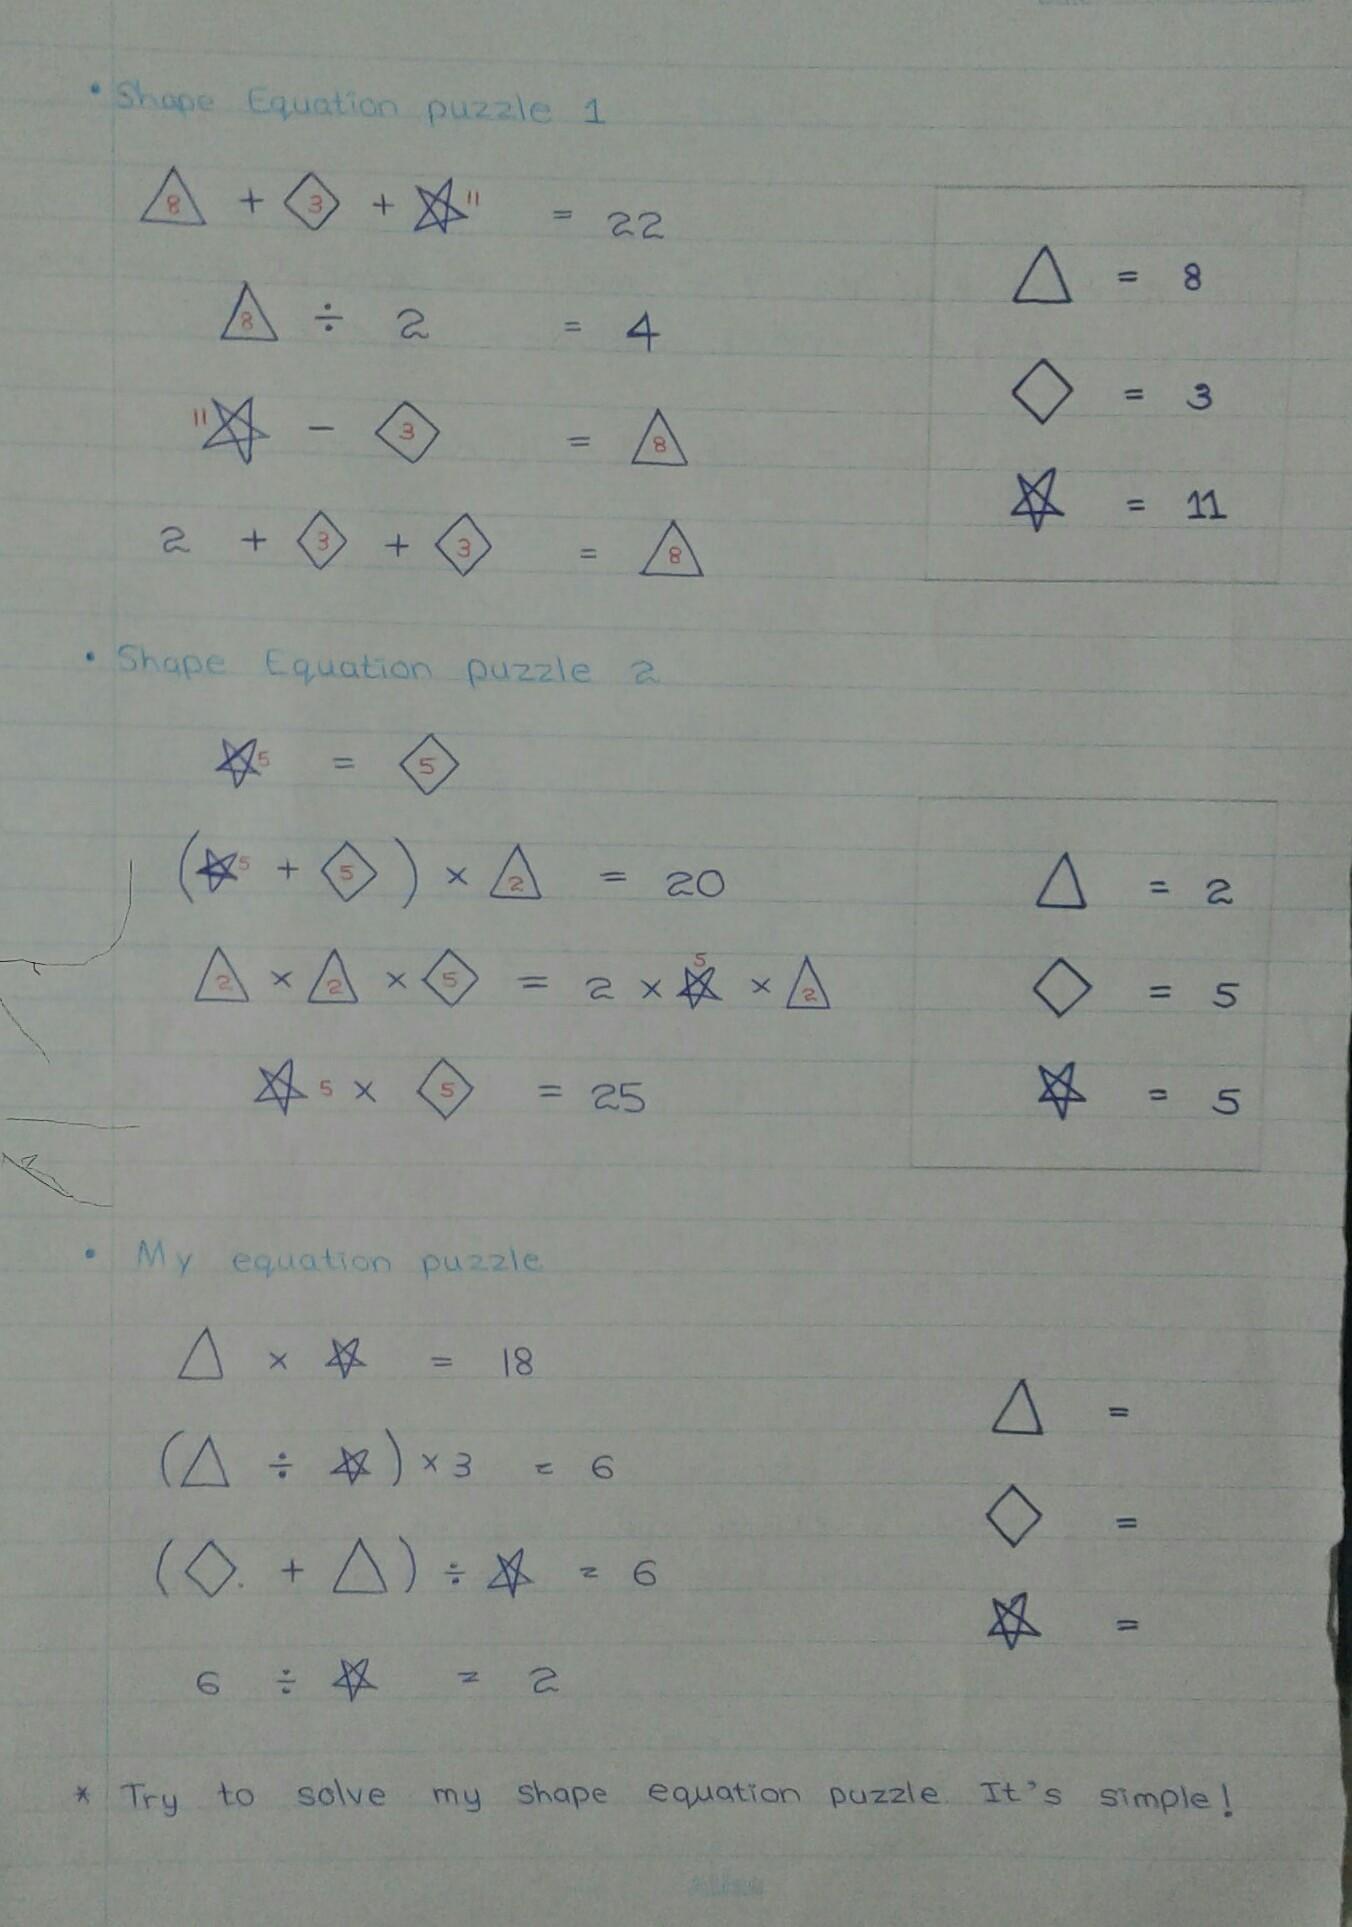 • Shape Equation puzzle 1
△ 8 + ◇ 3 + ☆ 11 = 22
△ = 8
△ 8 ÷ 2 = 4
◇ = 3
11 ☆ - ◇ 3 = △ 8
☆ = 11
2 + ◇ 3 + ◇ 3 = △ 8
• Shape Equation puzzle 2
☆ 5 = ◇ 5
(☆ 5 + ◇ 5) × △ 2 = 20
△ = 2
△ 2 × △ 2 × ◇ 5 = 2 × ☆ 5 × △ 2
◇ = 5
☆ 5 × ◇ 5 = 25
☆ = 5
• My equation puzzle
△ × ☆ = 18
△ =
(△ ÷ ☆) × 3 = 6
◇ =
(◇. + △) ÷ ☆ = 6
☆ =
6 ÷ ☆ = 2
* Try to solve my shape equation puzzle. It's simple!